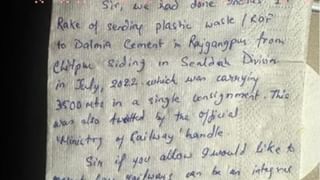 Sir, we had done 1
Rake of sending plastic waste / RDF
to Dalmia Cement in Rajgangpur from
Chitpur Siding in Sealdah Division
in July, 2022 which was carrying
3500 mts in a single consignment. This
was also twitted by the official
Ministry of Railway handle.
Sir if you allow I would like to
railways can be an integral